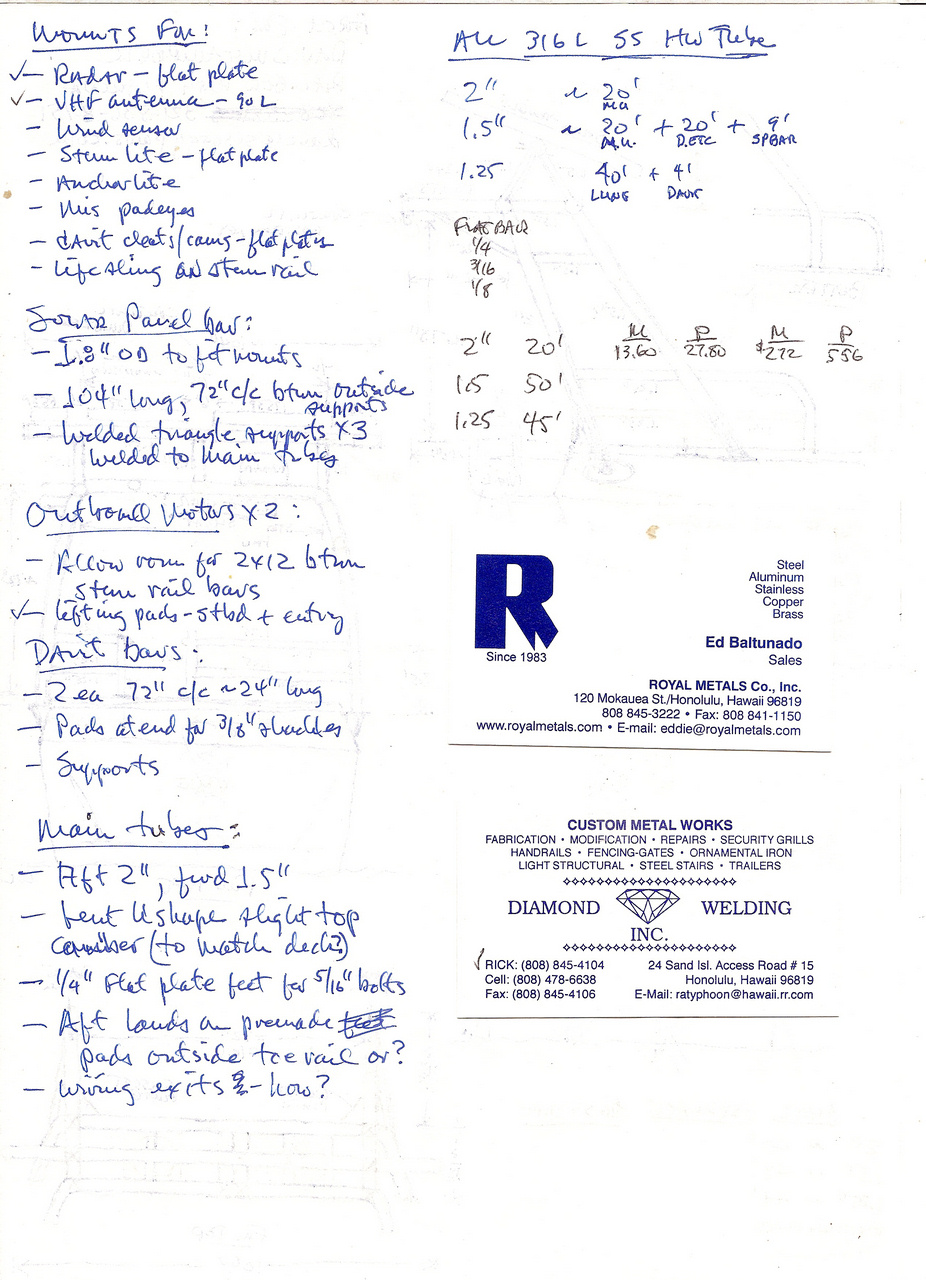 Mounts For:
✓ – Radar – flat plate
✓ – VHF antenna – 90 L
– Wind sensor
– Stern lite – flat plate
– Anchor lite
– Mis padeyes
– davit cleats/cams – flat plates
– Lifesling on stern rail
Solar Panel bar:
– 1.8" OD to fit mounts
– 104" long, 72" c/c btwn outside
supports
– Welded triangle supports x3
welded to main tubes
Outboard Motors x 2:
– Allow room for 2x12 btwn
stern rail bars
✓ – lifting pads – stbd + entry
Davit bars:
– 2 ea 72" c/c ~24" long
– Pads at end for 3/8" shackles
– Supports
Main tubes:
– Aft 2", fwd 1.5"
– bent U shape slight top
camber (to match deck?)
– 1/4" flat plate feet for 5/16" bolts
– Aft lands on premade
pads outside toe rail or?
– wiring exits – how?
All 316L SS HW Tube
2" ~ 20'
M.U.
1.5" ~ 20' + 20' + 9'
M.U. D.ETC SPBAR
1.25 40' + 4'
DAVIT
FLAT BAR
1/4
3/16
1/8
M P M P
2" 20' 13.60 27.80 $272 556
1.5 50'
1.25 45'
R
Since 1983
Steel
Aluminum
Stainless
Copper
Brass
Ed Baltunado
Sales
ROYAL METALS Co., Inc.
120 Mokauea St./Honolulu, Hawaii 96819
808 845-3222 • Fax: 808 841-1150
www.royalmetals.com • E-mail: eddie@royalmetals.com
CUSTOM METAL WORKS
FABRICATION • MODIFICATION • REPAIRS • SECURITY GRILLS
HANDRAILS • FENCING-GATES • ORNAMENTAL IRON
LIGHT STRUCTURAL • STEEL STAIRS • TRAILERS
DIAMOND WELDING
INC.
✓ RICK: (808) 845-4104 24 Sand Isl. Access Road # 15
Cell: (808) 478-6638 Honolulu, Hawaii 96819
Fax: (808) 845-4106 E-Mail: ratyphoon@hawaii.rr.com